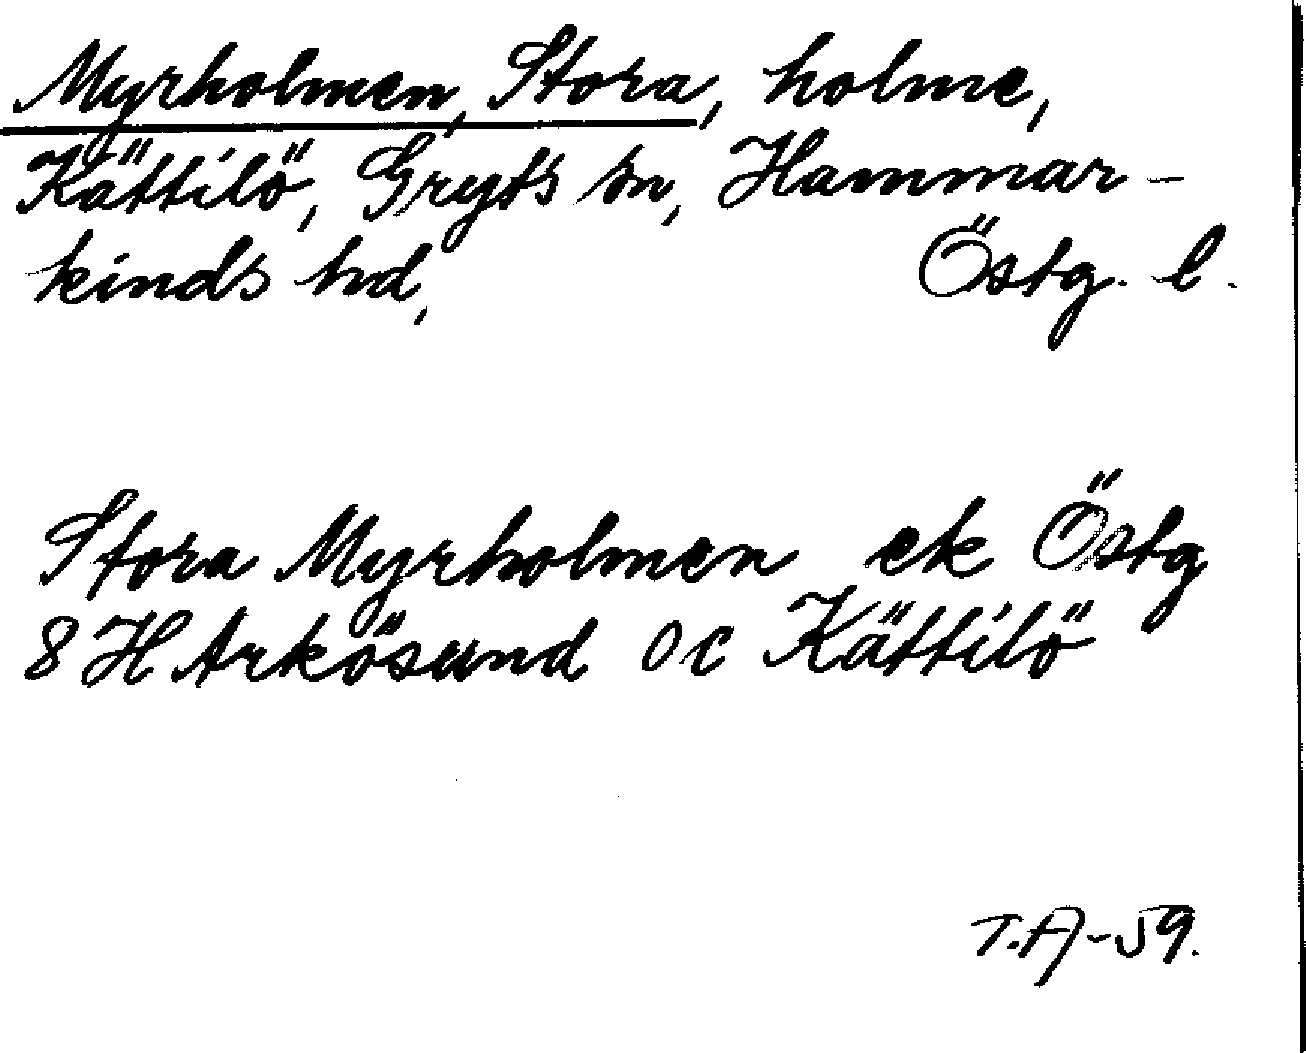 Myrholmen, Stora, holme,
Kättilö, Gryts sn, Hammar-
kinds hd, Östg. l.
Stora Myrholmen ek Östg
8 H Arkösund o c Kättilö
T.A-59.